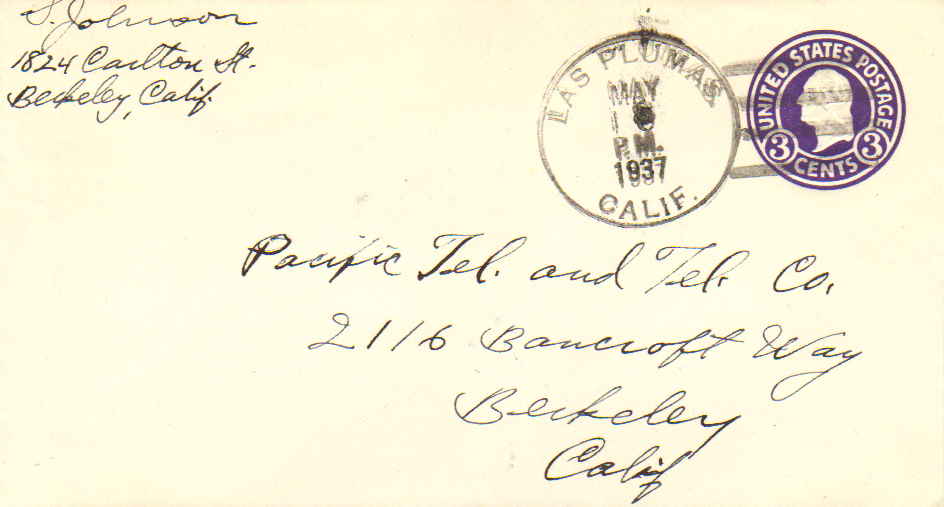 S. Johnson
1824 Carlton St.
Berkeley, Calif.
LAS PLUMAS
MAY
P.M.
1937
CALIF.
UNITED STATES POSTAGE
3 CENTS 3
Pacific Tel. and Tel. Co.
2116 Bancroft Way
Berkeley
Calif